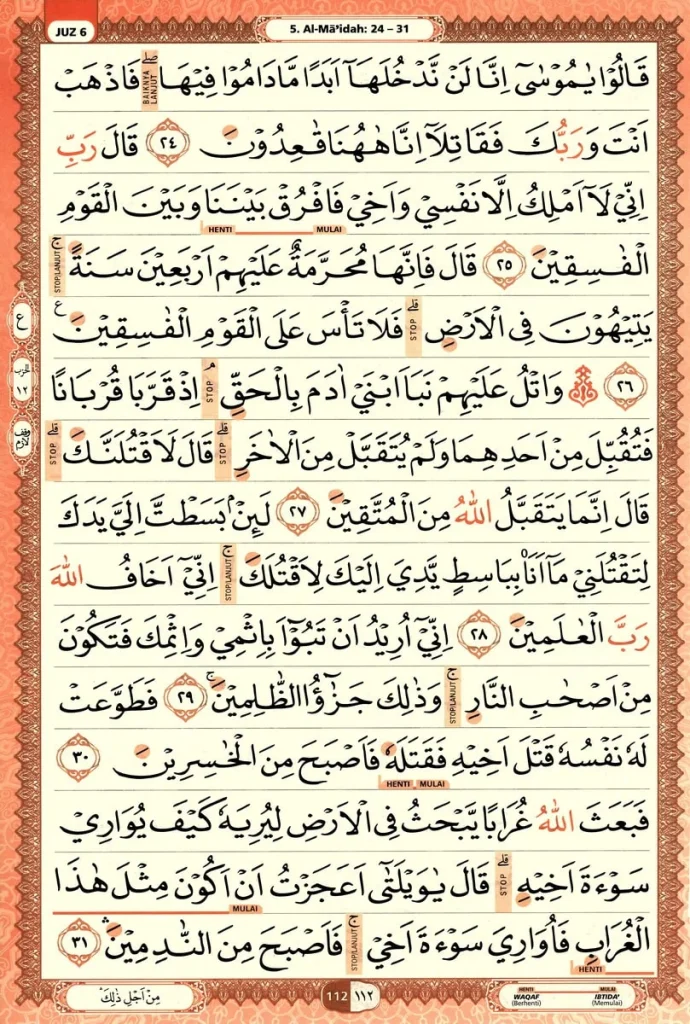 JUZ 6
5. Al-Mā'idah: 24 – 31
قَالُوْا يٰمُوْسٰٓى اِنَّا لَنْ نَّدْخُلَهَآ اَبَدًا مَّا دَامُوْا فِيْهَا ۖ فَاذْهَبْ
BAIKNYA LANJUT
اَنْتَ وَرَبُّكَ فَقَاتِلَآ اِنَّا هٰهُنَا قٰعِدُوْنَ ٢٤ قَالَ رَبِّ
اِنِّيْ لَآ اَمْلِكُ اِلَّا نَفْسِيْ وَاَخِيْ فَافْرُقْ بَيْنَنَا وَبَيْنَ الْقَوْمِ
HENTI MULAI
الْفٰسِقِيْنَ ٢٥ قَالَ فَاِنَّهَا مُحَرَّمَةٌ عَلَيْهِمْ اَرْبَعِيْنَ سَنَةً ۚ
STOP/LANJUT
يَتِيْهُوْنَ فِى الْاَرْضِ ۗ فَلَا تَأْسَ عَلَى الْقَوْمِ الْفٰسِقِيْنَ ع
STOP
٢٦ ۞ وَاتْلُ عَلَيْهِمْ نَبَاَ ابْنَيْ اٰدَمَ بِالْحَقِّ ۘ اِذْ قَرَّبَا قُرْبَانًا
STOP
فَتُقُبِّلَ مِنْ اَحَدِهِمَا وَلَمْ يُتَقَبَّلْ مِنَ الْاٰخَرِ ۗ قَالَ لَاَقْتُلَنَّكَ ۗ
STOP STOP
قَالَ اِنَّمَا يَتَقَبَّلُ اللّٰهُ مِنَ الْمُتَّقِيْنَ ٢٧ لَىِٕنْۢ بَسَطْتَّ اِلَيَّ يَدَكَ
لِتَقْتُلَنِيْ مَآ اَنَا۠ بِبَاسِطٍ يَّدِيَ اِلَيْكَ لِاَقْتُلَكَ ۚ اِنِّيْٓ اَخَافُ اللّٰهَ
STOP/LANJUT
رَبَّ الْعٰلَمِيْنَ ٢٨ اِنِّيْٓ اُرِيْدُ اَنْ تَبُوْۤاَ بِاِثْمِيْ وَاِثْمِكَ فَتَكُوْنَ
مِنْ اَصْحٰبِ النَّارِ ۚ وَذٰلِكَ جَزٰۤؤُا الظّٰلِمِيْنَ ۚ ٢٩ فَطَوَّعَتْ
STOP/LANJUT
لَهٗ نَفْسُهٗ قَتْلَ اَخِيْهِ فَقَتَلَهٗ فَاَصْبَحَ مِنَ الْخٰسِرِيْنَ ٣٠
HENTI MULAI
فَبَعَثَ اللّٰهُ غُرَابًا يَّبْحَثُ فِى الْاَرْضِ لِيُرِيَهٗ كَيْفَ يُوَارِيْ
سَوْءَةَ اَخِيْهِ ۗ قَالَ يٰوَيْلَتٰٓى اَعَجَزْتُ اَنْ اَكُوْنَ مِثْلَ هٰذَا
STOP
MULAI
الْغُرَابِ فَاُوَارِيَ سَوْءَةَ اَخِيْ ۚ فَاَصْبَحَ مِنَ النّٰدِمِيْنَ ۛ ٣١
STOP/LANJUT
HENTI
ع
الحزب
١٢
وقف لازم
مِنْ اَجْلِ ذٰلِكَ
112 ١١٢
HENTI WAQAF (Berhenti)
MULAI IBTIDA' (Memulai)